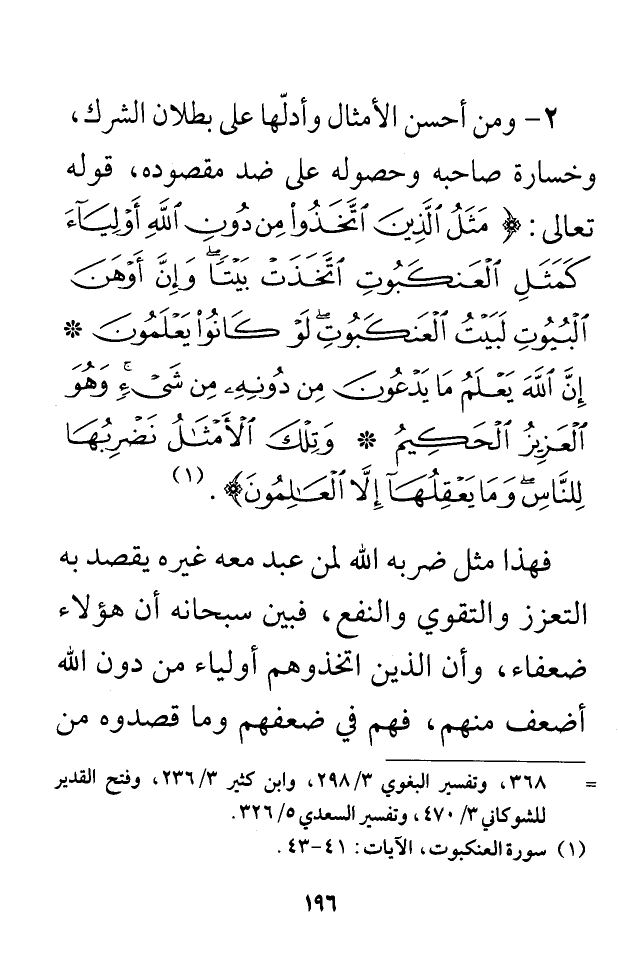 ٢- ومن أحسن الأمثال وأدلّها على بطلان الشرك،
وخسارة صاحبه وحصوله على ضد مقصوده، قوله
تعالى: ﴿ مَثَلُ ٱلَّذِينَ ٱتَّخَذُوا۟ مِن دُونِ ٱللَّهِ أَوْلِيَآءَ
كَمَثَلِ ٱلْعَنكَبُوتِ ٱتَّخَذَتْ بَيْتًاۖ وَإِنَّ أَوْهَنَ
ٱلْبُيُوتِ لَبَيْتُ ٱلْعَنكَبُوتِۖ لَوْ كَانُوا۟ يَعْلَمُونَ *
إِنَّ ٱللَّهَ يَعْلَمُ مَا يَدْعُونَ مِن دُونِهِۦ مِن شَىْءٍۚ وَهُوَ
ٱلْعَزِيزُ ٱلْحَكِيمُ * وَتِلْكَ ٱلْأَمْثَٰلُ نَضْرِبُهَا
لِلنَّاسِۖ وَمَا يَعْقِلُهَآ إِلَّا ٱلْعَٰلِمُونَ﴾ .(١)
فهذا مثل ضربه الله لمن عبد معه غيره يقصد به
التعزز والتقوي والنفع، فبين سبحانه أن هؤلاء
ضعفاء، وأن الذين اتخذوهم أولياء من دون الله
أضعف منهم، فهم في ضعفهم وما قصدوه من
= ٣٦٨، وتفسير البغوي ٢٩٨/٣، وابن كثير ٢٣٦/٣، وفتح القدير
للشوكاني ٤٧٠/٣، وتفسير السعدي ٣٢٦/٥.
(١) سورة العنكبوت، الآيات: ٤١-٤٣ .
١٩٦